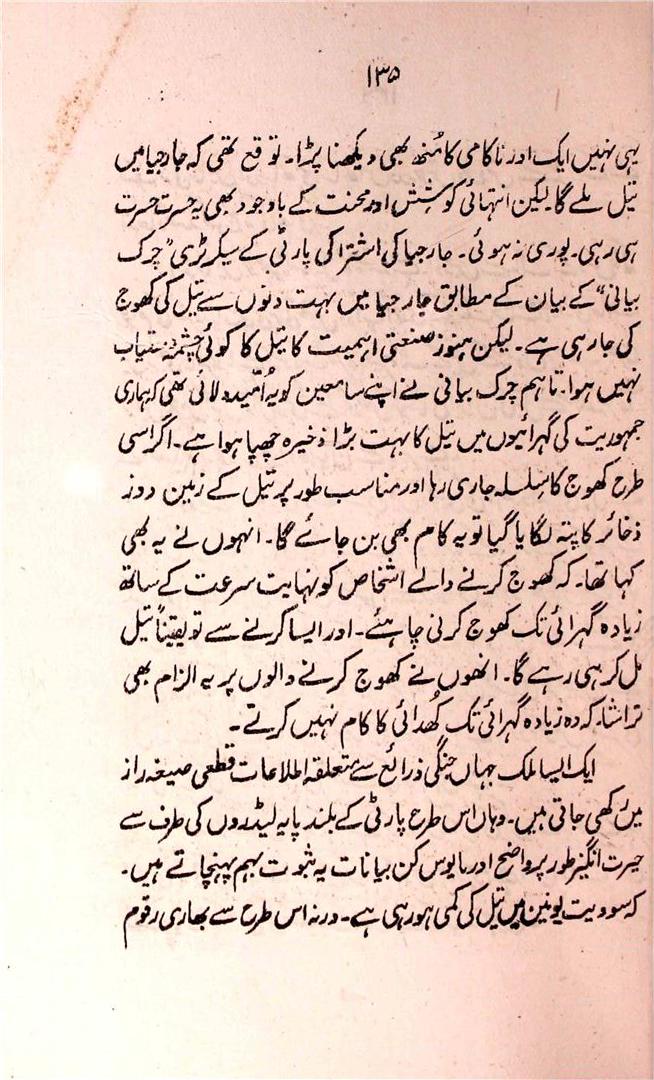 ۱۳۵
یہی نہیں ایک اور ناکامی کا مُنھ بھی دیکھنا پڑا۔ توقع تھی کہ جارجیا میں
تیل ملے گا لیکن انتہائی کوشش اور محنت کے باوجود بھی یہ حسرت حسرت
ہی رہی۔ پوری نہ ہوئی۔ جارجیا کی اشتراکی پارٹی کے سیکرٹری "چرک
بیانی" کے بیان کے مطابق جارجیا میں بہت دنوں سے تیل کی کھوج
کی جا رہی ہے۔ لیکن ہنوز صنعتی اہمیت کا تیل کا کوئی چشمہ دستیاب
نہیں ہوا۔ تاہم چرک بیانی نے اپنے سامعین کو یہ اُمید دلائی تھی کہ ہماری
جمہوریت کی گہرائیوں میں تیل کا بہت بڑا ذخیرہ چھپا ہوا ہے۔ اگر اسی
طرح کھوج کا سلسلہ جاری رہا اور مناسب طور پر تیل کے زمین دوز
ذخائر کا پتہ لگایا گیا تو یہ کام بھی بن جائے گا۔ انہوں نے یہ بھی
کہا تھا۔ کہ کھوج کرنے والے اشخاص کو نہایت سرعت کے ساتھ
زیادہ گہرائی تک کھوج کرنی چاہئے۔ اور ایسا کرنے سے تو یقیناً تیل
مل کر ہی رہے گا۔ انھوں نے کھوج کرنے والوں پر یہ الزام بھی
تراشا۔ کہ وہ زیادہ گہرائی تک کُھدائی کا کام نہیں کرتے۔
ایک ایسا ملک جہاں جنگی ذرائع سے متعلقہ اطلاعات قطعی صیغہ راز
میں رکھی جاتی ہیں۔ وہاں اس طرح پارٹی کے بلند پایہ لیڈروں کی طرف سے
حیرت انگیز طور پر واضح اور مایوس کن بیانات یہ ثبوت بہم پہنچاتے ہیں۔
کہ سوویت یونین میں تیل کی کمی ہو رہی ہے۔ ورنہ اس طرح سے بھاری رقوم